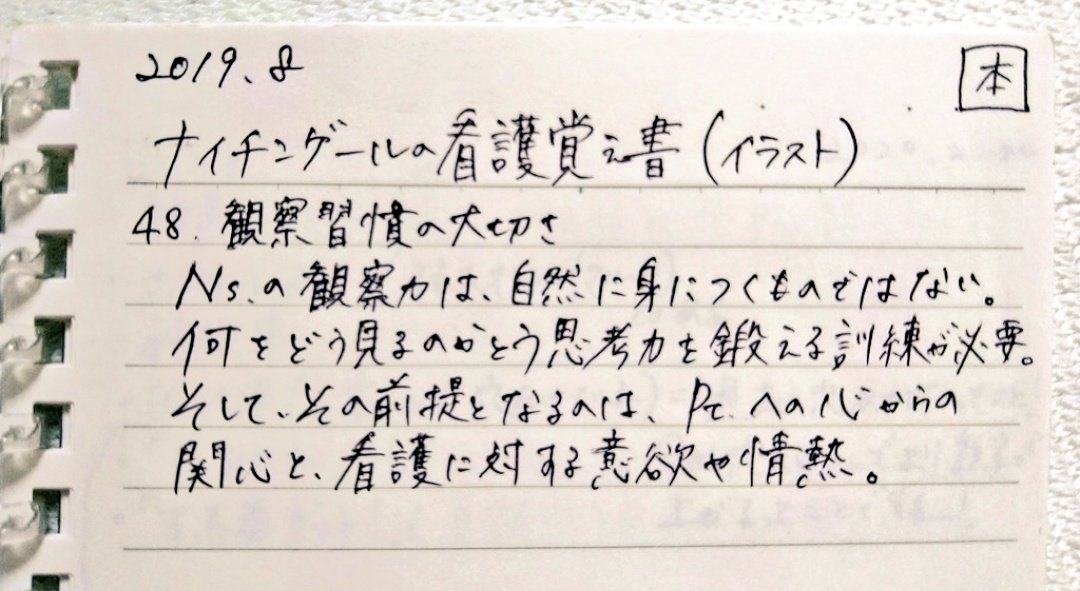 2019.8
本
ナイチンゲールの看護覚え書(イラスト)
48. 観察習慣の大切さ
Ns.の観察力は、自然に身につくものではない。
何をどう見るのかとう思考力を鍛える訓練が必要。
そして、その前提となるのは、Pt.への心からの
関心と、看護に対する意欲や情熱。